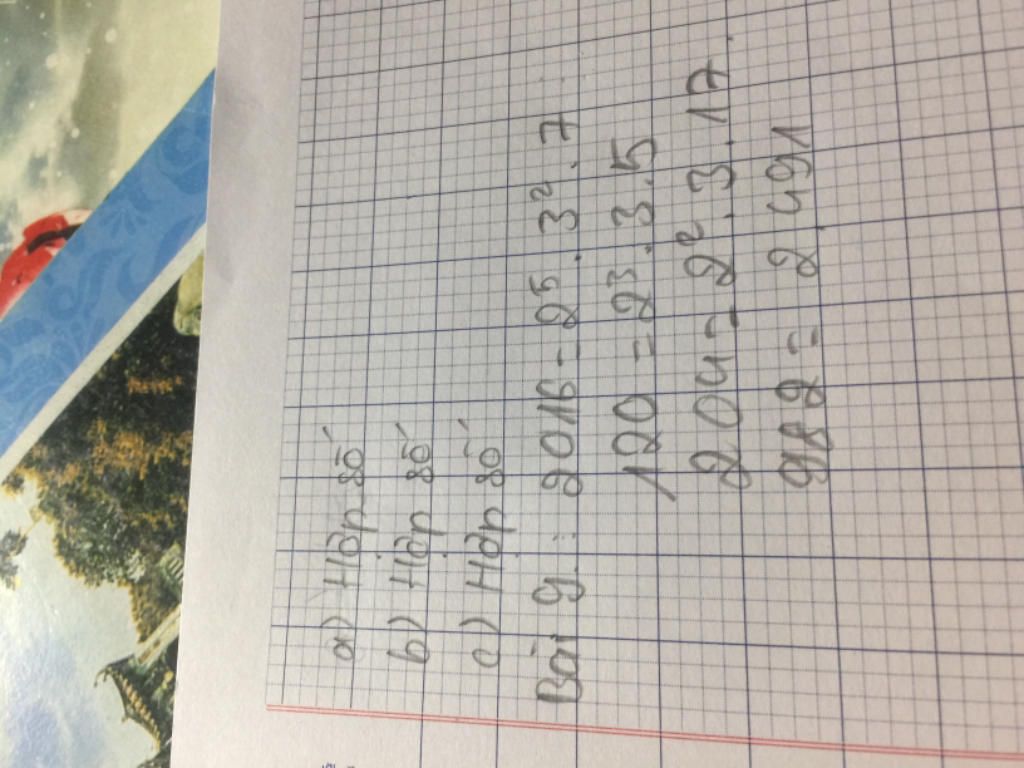 a) Hợp số
b) Hợp số
c) Hợp số
Bài 9: 2016 = 2⁵.3².7
120 = 2³.3.5
204 = 2².3.17
982 = 2.491